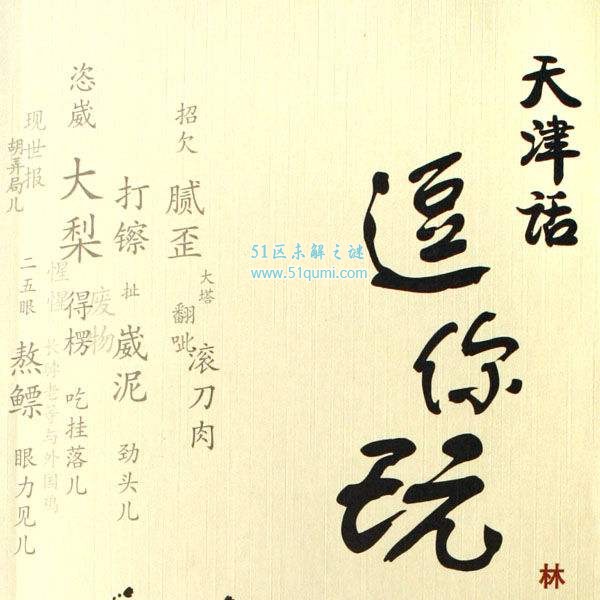 天津话
逗你玩
林
招欠
腻歪
大塔
翻呲
滚刀肉
打镲
扯
崴泥
劲头儿
恣崴
大梨
得楞
吃挂落儿
废物
现世报
胡弄局儿
二五眼
熬鳔
眼力见儿
51区未解之谜
www.51qumi.com